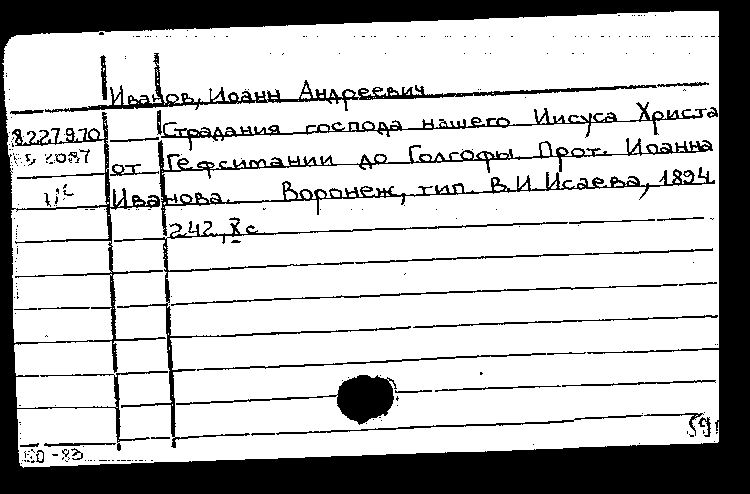 Иванов, Иоанн Андреевич
8.227.9.70 Страдания господа нашего Иисуса Христа
от Гефсимании до Голгофы. Прот. Иоанна
Иванова. Воронеж, тип. В.И. Исаева, 1894
242, X с